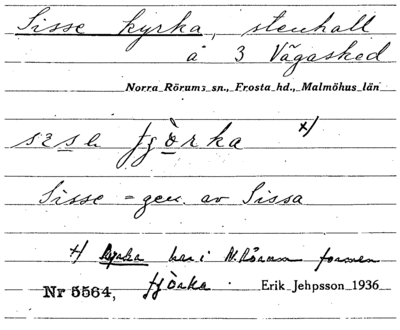 Sisse kyrka, stenhall
å 3 Vägasked
Norra Rörums sn., Frosta hd., Malmöhus län
fjòrka x/
Sisse = gen. av Sissa
x/ kyrka har i N. Rörum formen
fjòrka.
Nr 5564, Erik Jehpsson 1936